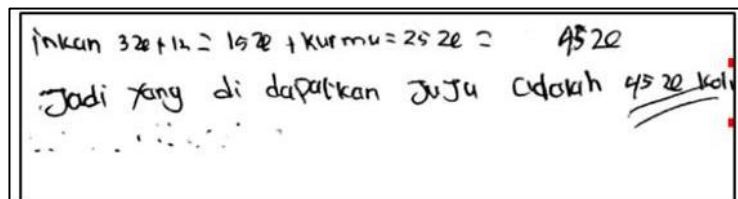 inkan 320 + 12 = 1520 + kurmu = 2520 = 4520
Jadi yang di dapatkan Juju adalah 4520 kal